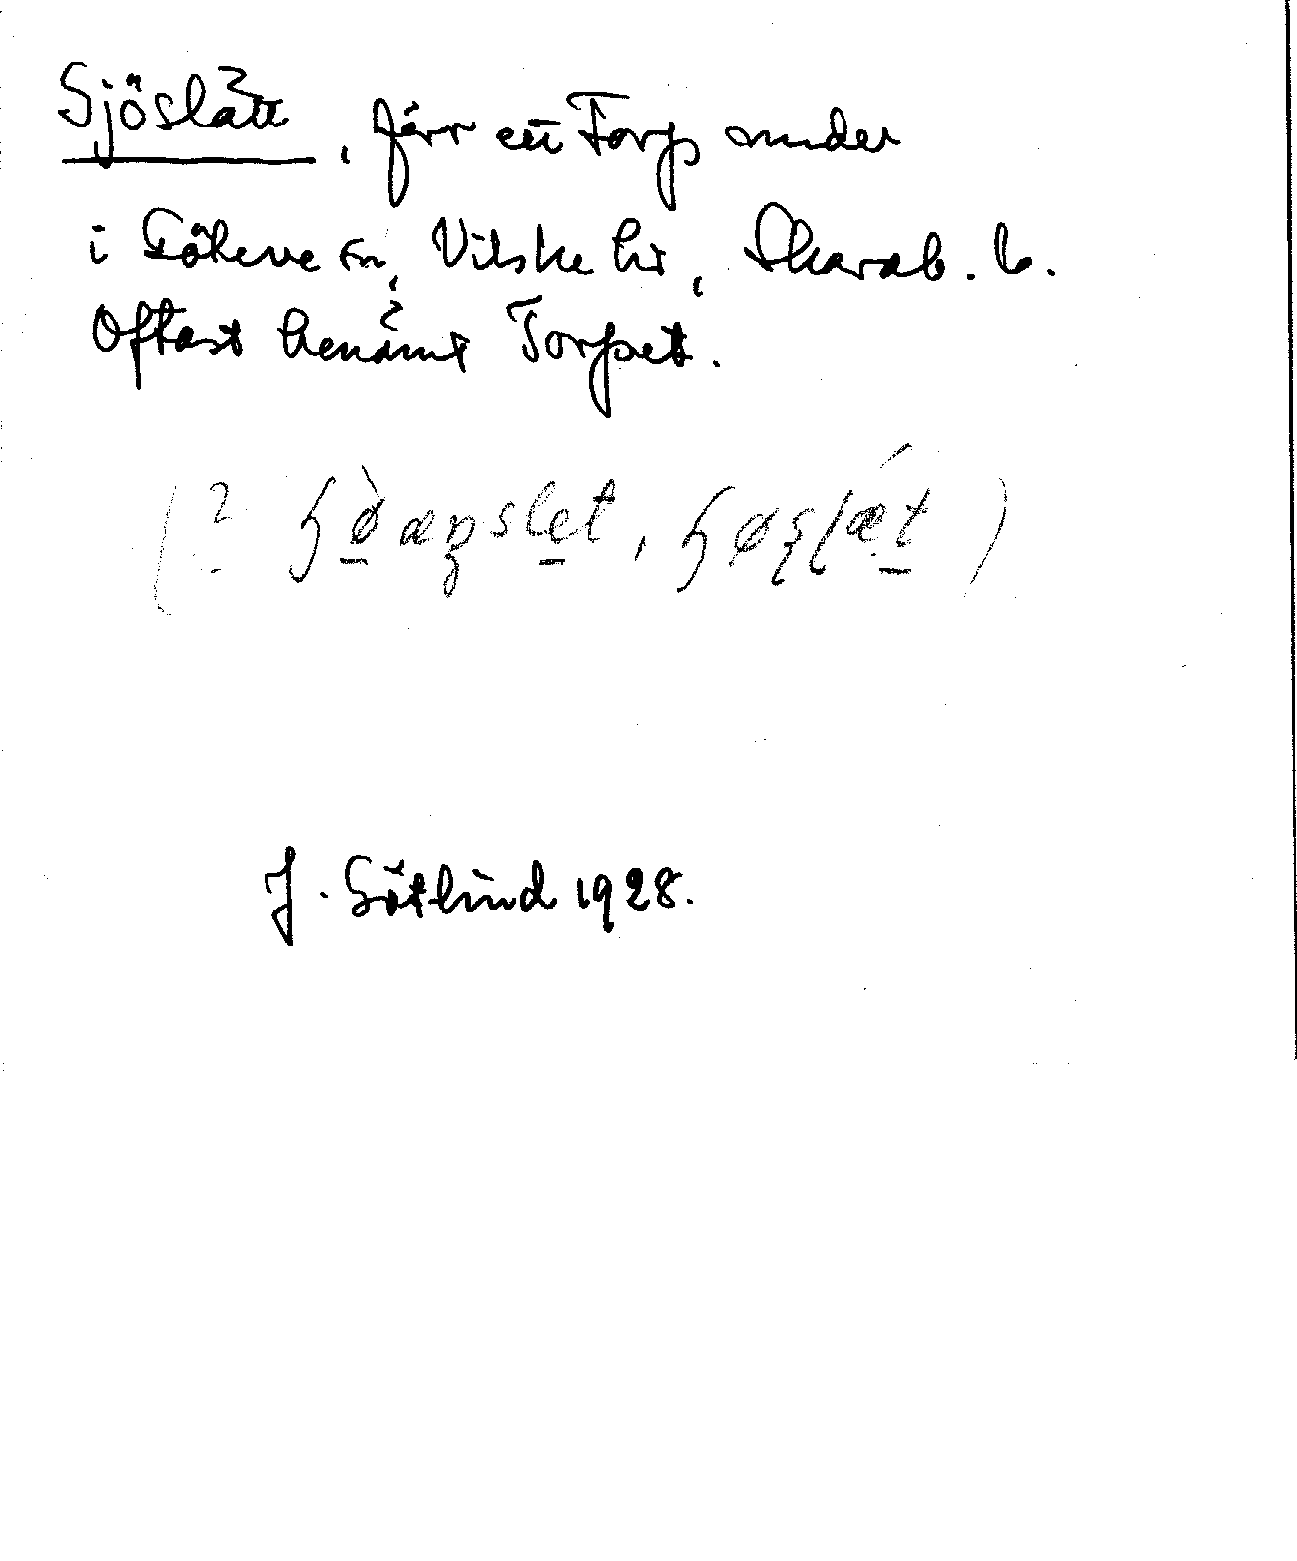 Sjöslätt, förr ett Torp under
i Göteve sn, Vilske hd, Skarab. l.
Oftast benämt Torpet.
J. Götlind 1928.